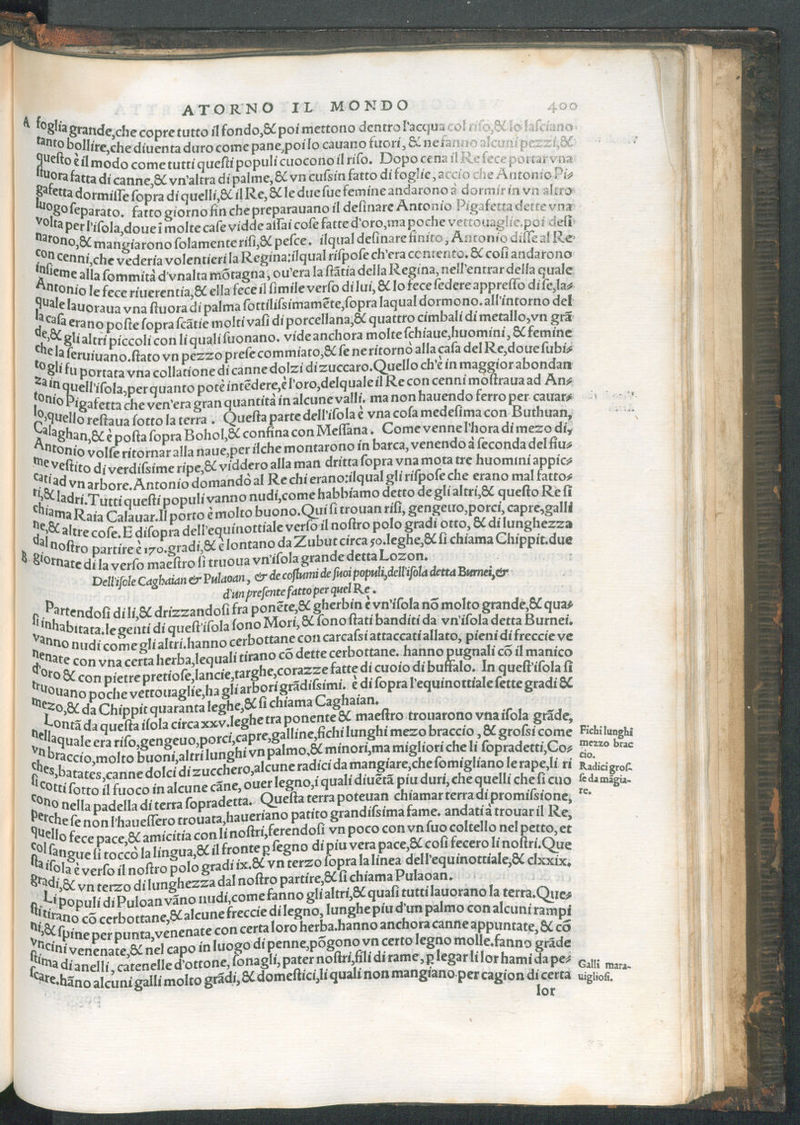 ATORNO IL MONDO 400
A foglia grande,che copre tutto il fondo,& poi mettono dentro l'acqua col riso,& lo lasciano
tanto bollire,che diuenta duro come pane,poi lo cauano fuori, & ne fanno alcuni pezzi,&
questo è il modo come tutti questi populi cuocono il riso. Dopo cena il Re fece portar vna
stuora fatta di canne,& vn'altra di palme, & vn cussin fatto di foglie, accio che Antonio Pi⸗
gafetta dormisse sopra di quelli,& il Re, & le due sue femine andarono à dormir in vn altro
luogo separato. fatto giorno fin che preparauano il desinare Antonio Pigafetta dette vna
volta per l'isola,doue ī molte case vidde assai cose fatte d'oro,ma poche vettouaglie.poi desi
narono,& mangiarono solamente risi,& pesce. ilqual desinare finito, Antonio disse al Re
con cenni,che vederia volentieri la Regina:ilqual rispose ch'era contento. & cosi andarono
insieme alla sommità d'vnalta mōtagna, ou'era la stātia della Regina, nell'entrar della quale
Antonio le fece riuerentia,& ella fece il simile verso di lui, & lo fece sedere appresso di se,la⸗
quale lauoraua vna stuora di palma sottilissimamēte,sopra laqual dormono.all'intorno del
la casa erano poste sopra scātie molti vasi di porcellana,& quattro cimbali di metallo,vn grā
de,& gli altri piccoli con li quali suonano. vide anchora molte schiaue,huomini, & femine
che la seruiuano.stato vn pezzo prese commiato,& se ne ritornò alla casa del Re,doue subi⸗
to gli fu portata vna collatione di canne dolzi di zuccaro.Quello ch'è in maggior abondan
za in quell'isola,per quanto potè intēdere,è l'oro,delquale il Re con cenni mostraua ad An⸗
tonio Pigafetta che ven'era gran quantità in alcune valli. ma non hauendo ferro per cauar⸗
lo,quello restaua sotto la terra. Questa parte dell'isola è vna cosa medesima con Buthuan,
Calaghan,& è posta sopra Bohol,& confina con Messana. Come venne l'hora di mezo dì,
Antonio volse ritornar alla naue,per ilche montarono in barca, venendo à seconda del fiu⸗
me vestito di verdissime ripe,& viddero alla man dritta sopra vna mota tre huomini appic⸗
cati ad vn arbore.Antonio domandò al Re chi erano:ilqual gli rispose che erano mal fatto⸗
ri,& ladri.Tutti questi populi vanno nudi,come habbiamo detto de gli altri,& questo Re si
chiama Raia Calauar.Il porto è molto buono.Qui si trouan risi, gengeuo,porci, capre,galli
ne,& altre cose.E disopra dell'equinottiale verso il nostro polo gradi otto, & di lunghezza
dal nostro partire è 170.gradi,& è lontano da Zubut circa 50.leghe,& si chiama Chippit.due
B giornate di la verso maestro si truoua vn'isola grande detta Lozon.
Dell'isole Caghaian & Pulaoan, & de costumi de suoi populi,dell'isola detta Burnei,&
d'un presente fatto per quel Re.
Partendosi di li,& drizzandosi fra ponēte,& gherbin è vn'isola nō molto grande,& qua⸗
si inhabitata.le genti di quest'isola sono Mori, & sono stati banditi da vn'isola detta Burnei.
vanno nudi come gli altri.hanno cerbottane con carcassi attaccati allato, pieni di freccie ve
nenate con vna certa herba,lequali tirano cō dette cerbottane. hanno pugnali cō il manico
d'oro & con pietre pretiose,lancie,targhe,corazze fatte di cuoio di buffalo. In quest'isola si
truouano poche vettouaglie,ha gli arbori grādissimi. è di sopra l'equinottiale sette gradi &
mezo,& da Chippit quaranta leghe,& si chiama Caghaian.
Lontā da questa isola circa xxv.leghe tra ponente & maestro trouarono vna isola grāde,
nellaquale era riso,gengeuo,porci,capre,galline,fichi lunghi mezo braccio, & grossi come
vn braccio,molto buoni,altri lunghi vn palmo,& minori,ma migliori che li sopradetti,Co⸗
ches,batates,canne dolci di zucchero,alcune radici da mangiare,che somigliano le rape,li ri
si cotti sotto il fuoco in alcune cāne, ouer legno,i quali diuētā piu duri, che quelli che si cuo
cono nella padella di terra sopradetta. Questa terra poteuan chiamar terra di promissione,
perche se non l'hauessero trouata,haueriano patito grandissima fame. andati à trouar il Re,
quello fece pace,& amicitia con li nostri,ferendosi vn poco con vn suo coltello nel petto, et
col sangue si toccò la lingua,& il fronte ꝑ segno di piu vera pace,& cosi fecero li nostri.Que
sta isola è verso il nostro polo gradi ix.& vn terzo sopra la linea dell'equinottiale,& clxxix.
gradi,& vn terzo di lunghezza dal nostro partire,& si chiama Pulaoan.
Li populi di Puloan vāno nudi,come fanno gli altri,& quasi tutti lauorano la terra.Que⸗
sti tirano cō cerbottane,& alcune freccie di legno, lunghe piu d'un palmo con alcuni rampi
ni,& spine per punta,venenate con certa loro herba.hanno anchora canne appuntate, & cō
vncini venenate,& nel capo in luogo di penne,pōgono vn certo legno molle.fanno grāde
stima di anelli, catenelle d'ottone, sonagli, pater nostri,fili di rame, ꝑ legar li lor hami da pe⸗
scare.hāno alcuni galli molto grādi, & domestici,li quali non mangiano per cagion di certa
lor
Fichi lunghi
mezzo brac
cio.
Radici gros⸗
se da māgia⸗
re.
Galli mara⸗
uigliosi.